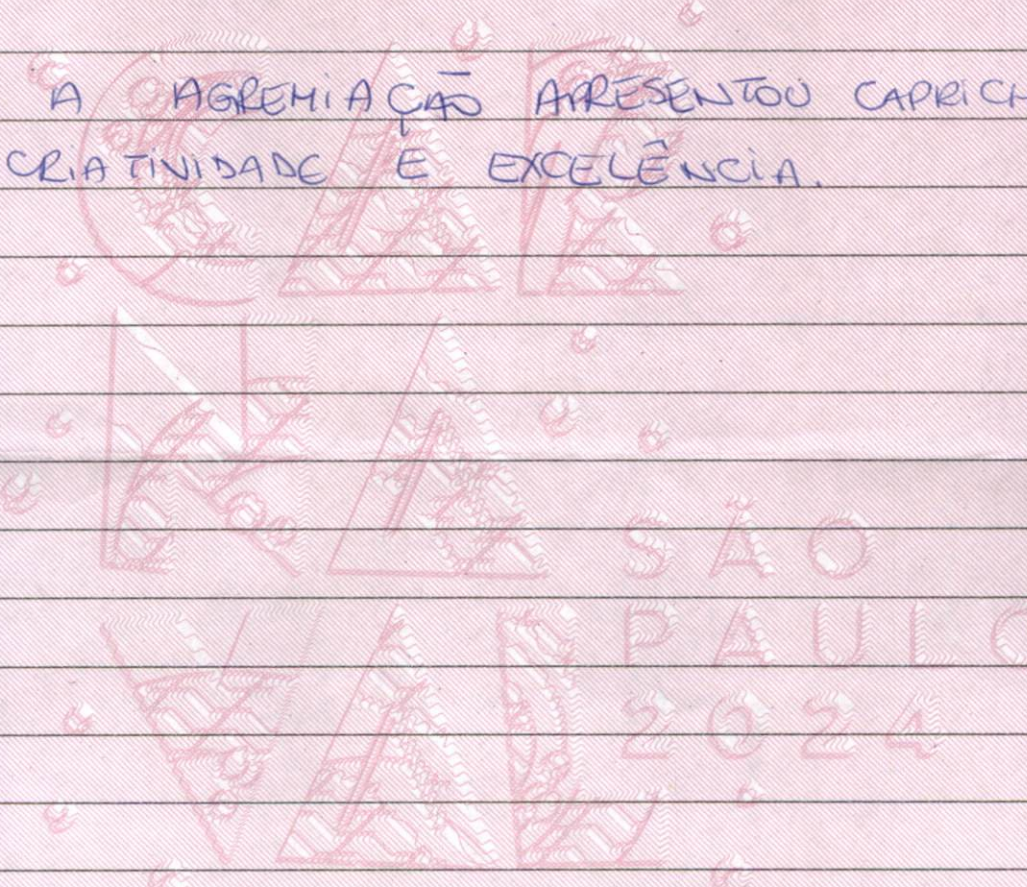 A AGREMIAÇÃO APRESENTOU CAPRICH
CRIATIVIDADE E EXCELÊNCIA.
SÃO
PAULO
2024